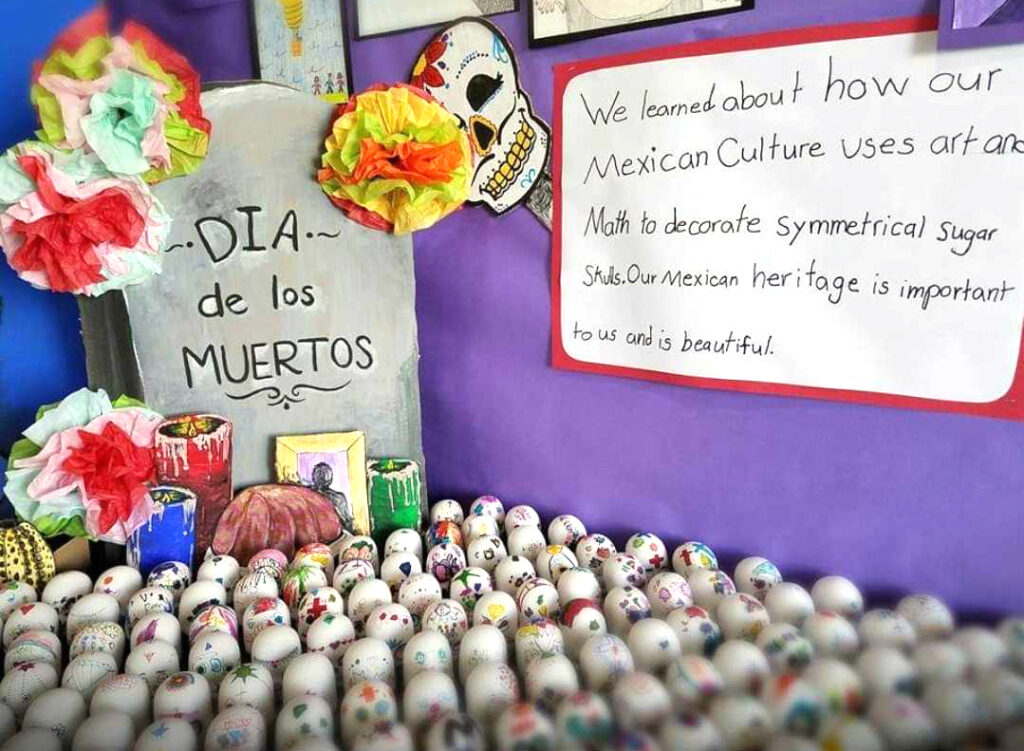 ~·DIA·~
de los
MUERTOS
We learned about how our
Mexican Culture uses art and
Math to decorate symmetrical sugar
Skulls. Our Mexican heritage is important
to us and is beautiful.